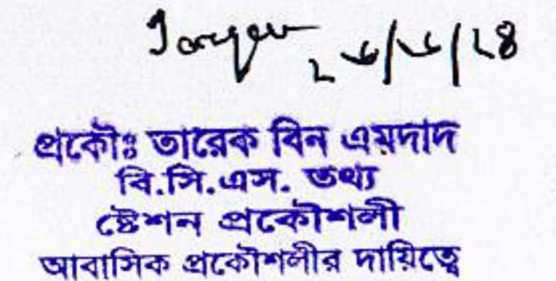 প্রকৌঃ তারেক বিন এমদাদ
বি.সি.এস. তথ্য
ষ্টেশন প্রকৌশলী
আবাসিক প্রকৌশলীর দায়িত্বে